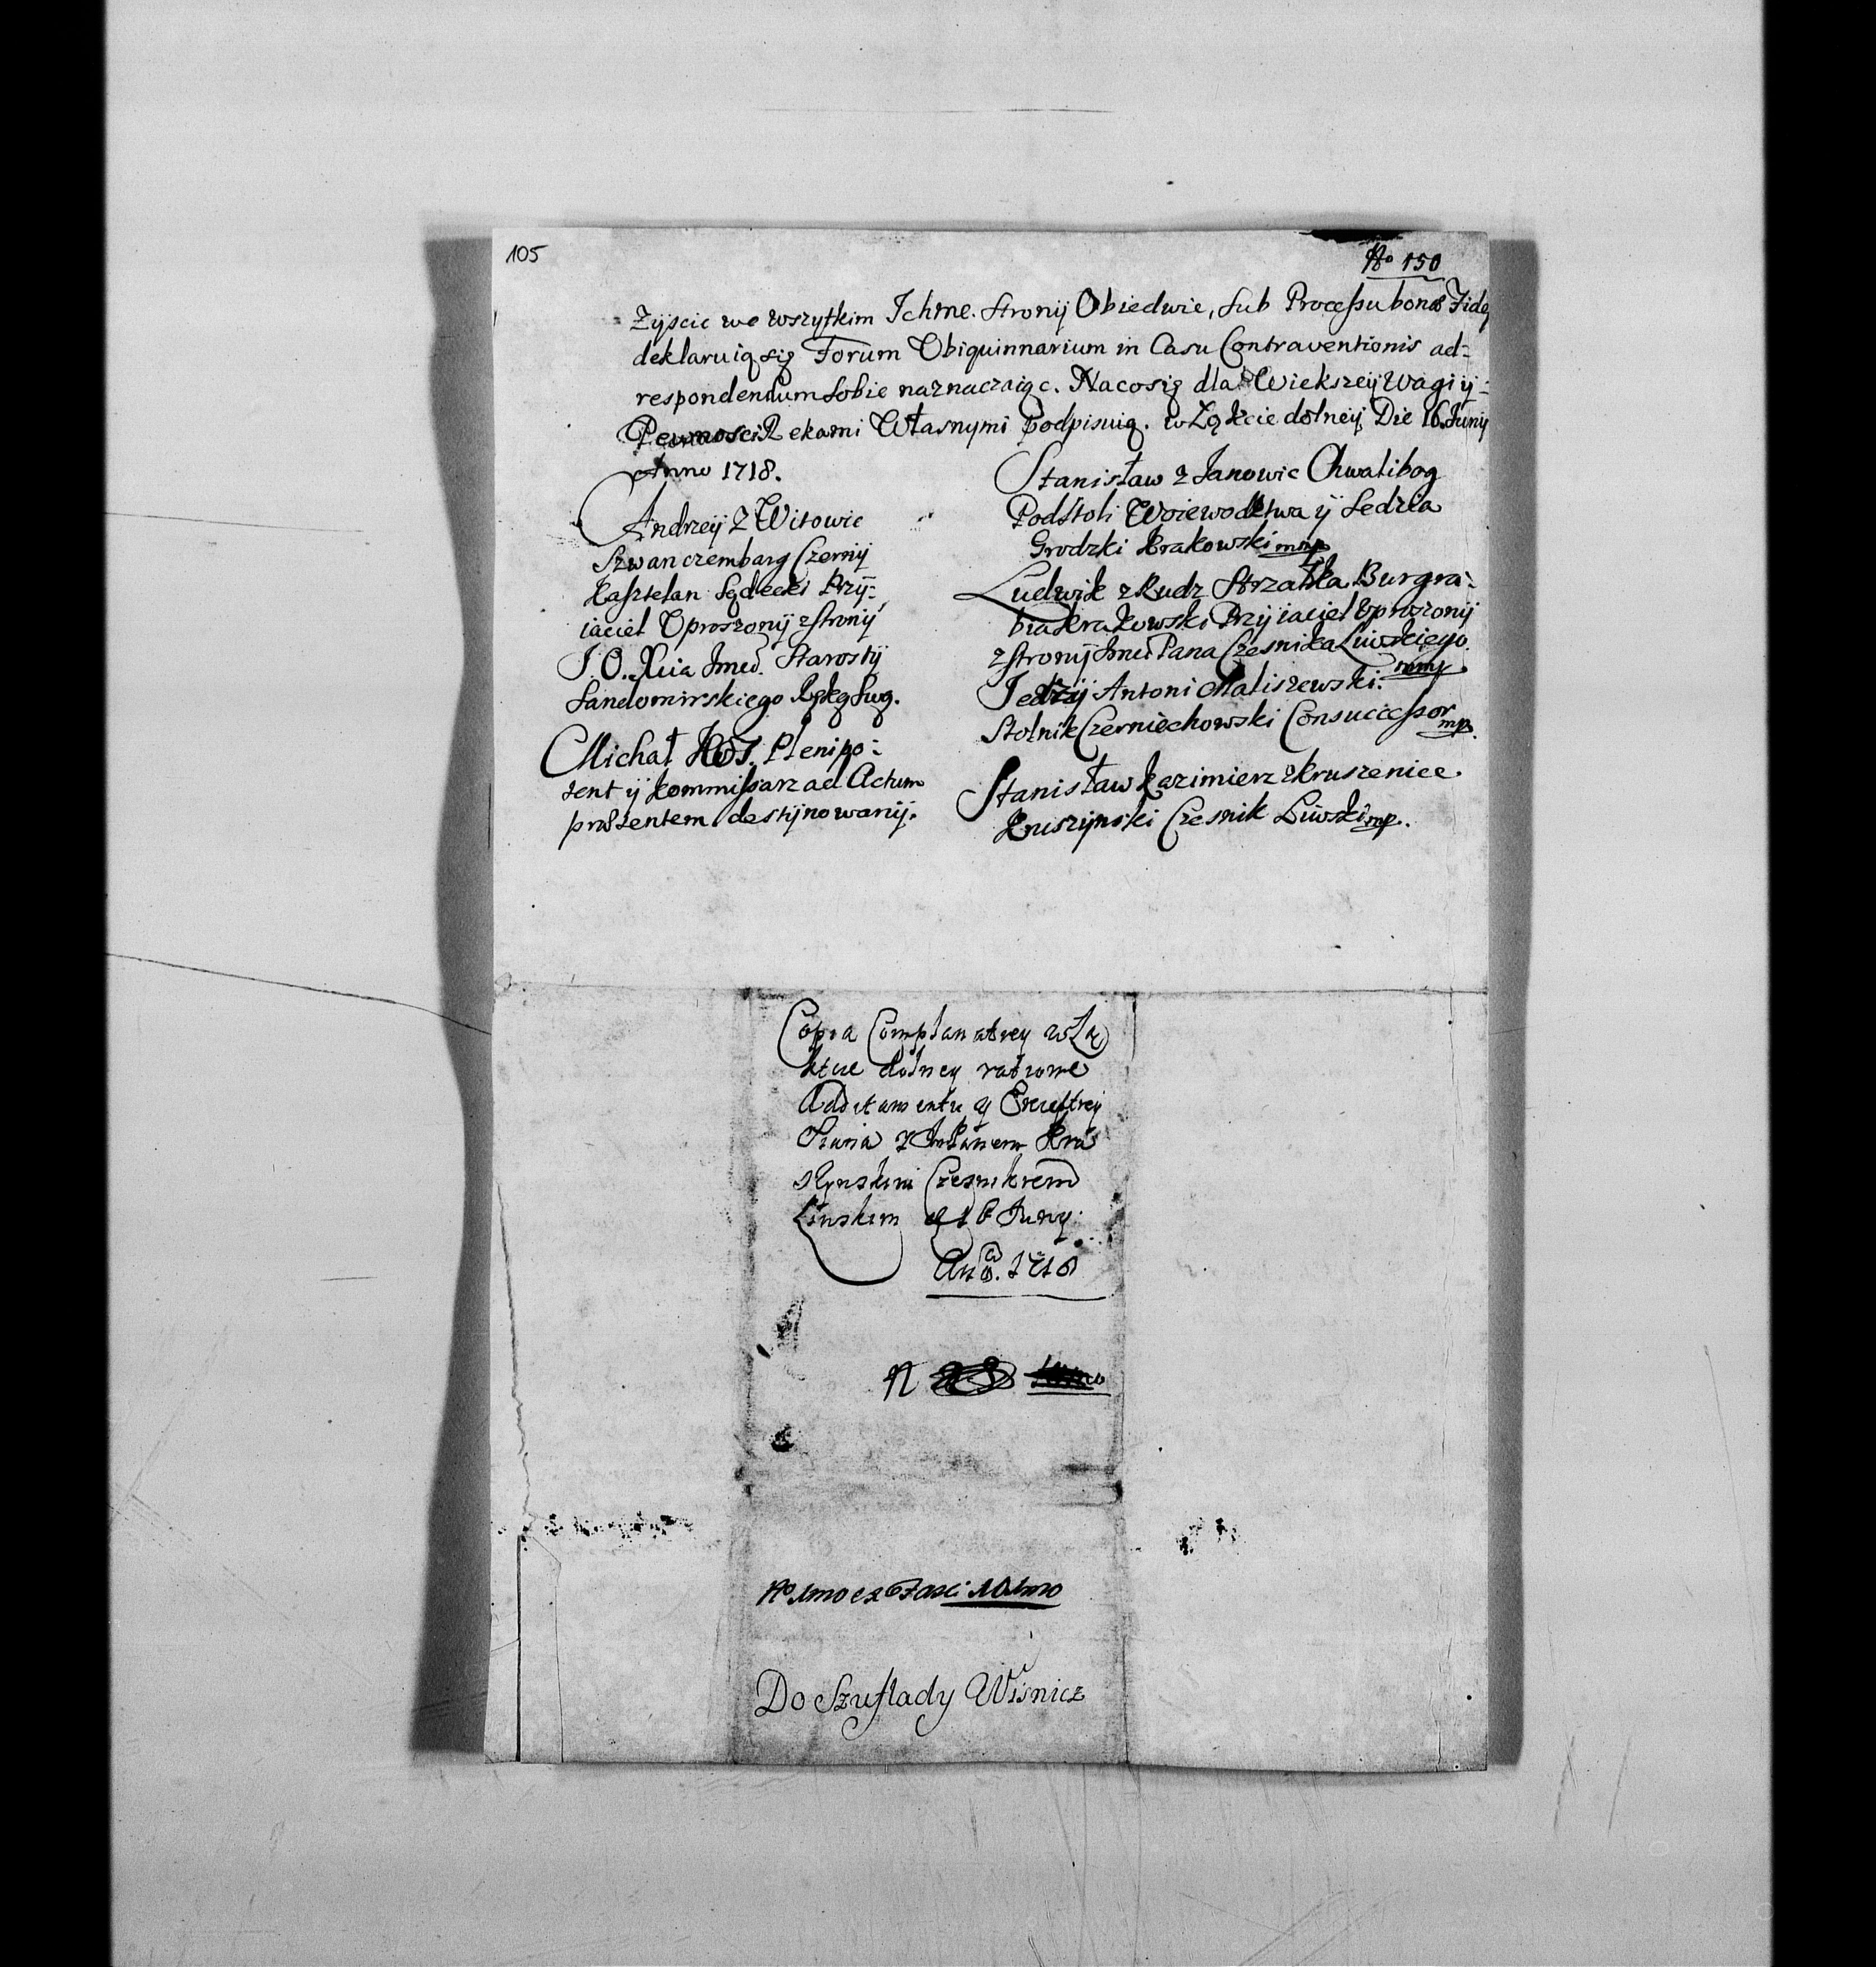 105
No 150
Zyscic we wszytkim Ichme. stronij Obiedwie, sub Processu bonæ Fidej
deklaruią się Forum Ubiquinnarium in Casu Contraventionis ad=
respondendum sobie naznaczaiąc. Na co się dla Wiekszeij Wagi ij=
Pewnosci Rekami Własnymi Podpisuią. w Łąkcie dolneij Die 16. Junij
Anno 1718.
Andrzeij Z Witowic
Szwanczembarg Czernij
Kasztelan Sądecki Przij=
iaciel Uproszonij z stronij
J.O. Xcia Jmci Starostij
Sandomirskiego Ręką Swą.
Michał Plenipo=
tent ij kommissarz ad Actum
præsentem destijnowanij.
Stanisław z Janowic Chwalibog
Podstoli Woiewodztwa ij Sedzia
Grodzki Krakowski mmp
Ludwik z Rudz Strzałka Burgra=
bia Krakowski Przijiaciel Uproszonij
z stronij Jmci Pana Czesnika Liwskiego
mmp
Jedrzij Antoni Maliszewski.
Stolnik Czerniechowski Consuccessor mp.
Stanisław Kazimierz z Kruszenice
Kruszijnski Czesnik Liwski mp.
Copia Complanatiey w Łą
kcie dolney ratione
Additamentu y
z ImPanem Kru
szynskim Czesnikiem
Liwskim d 16 Juny
Ano. 1718
N
No 1mo ex Fasci 101mo
Do Szuflady Wisnicz